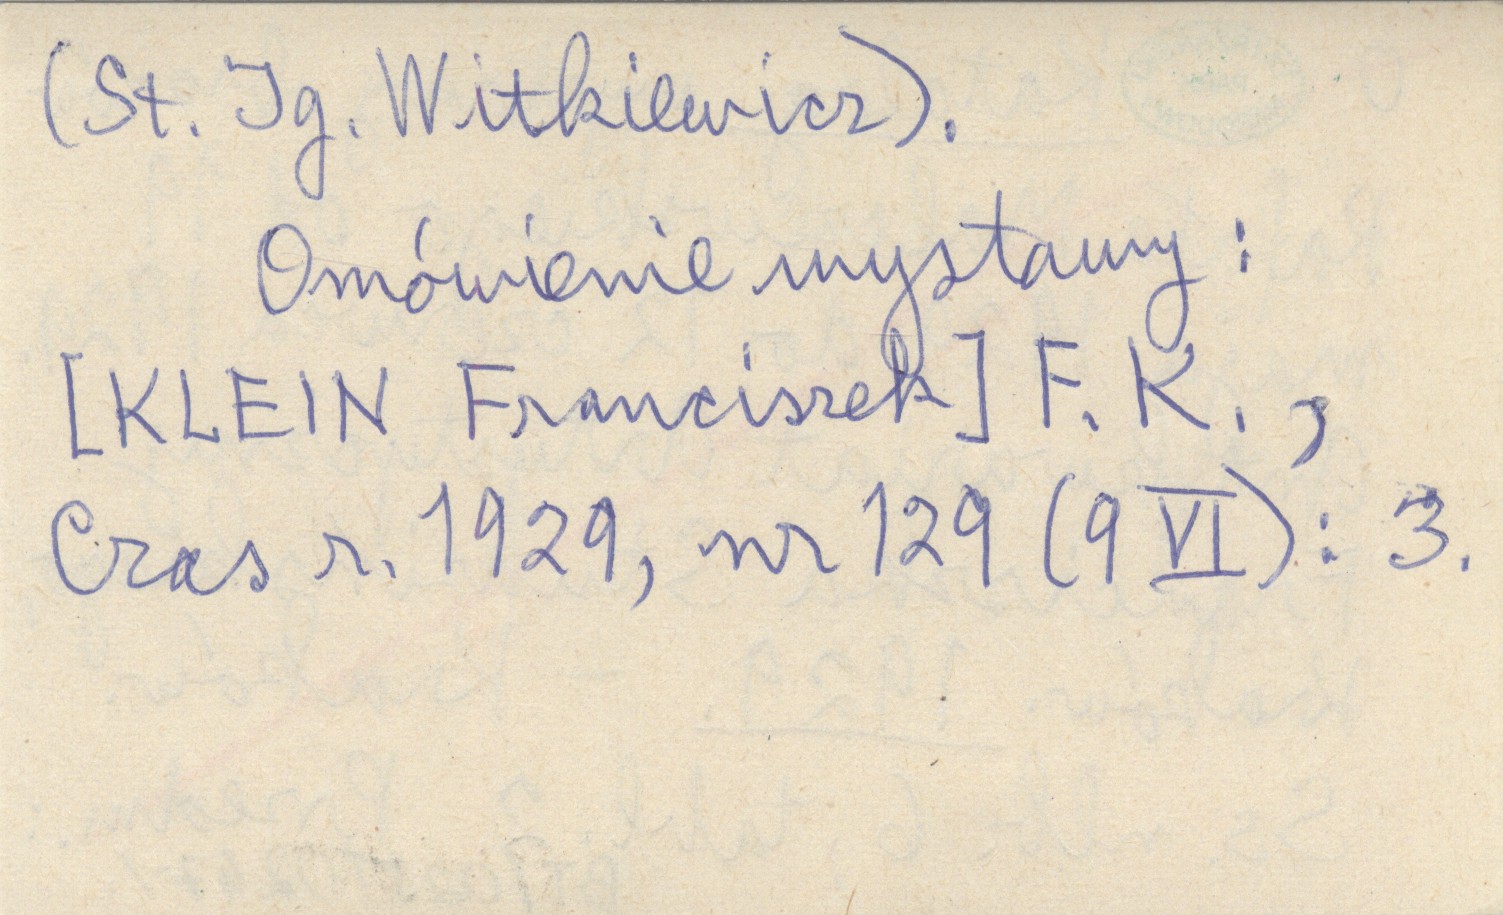 (St. Ig. Witkiewicz).
Omówienie wystawy:
[KLEIN Franciszek] F. K.,
Czas r. 1929, nr 129 (9 VI): 3.